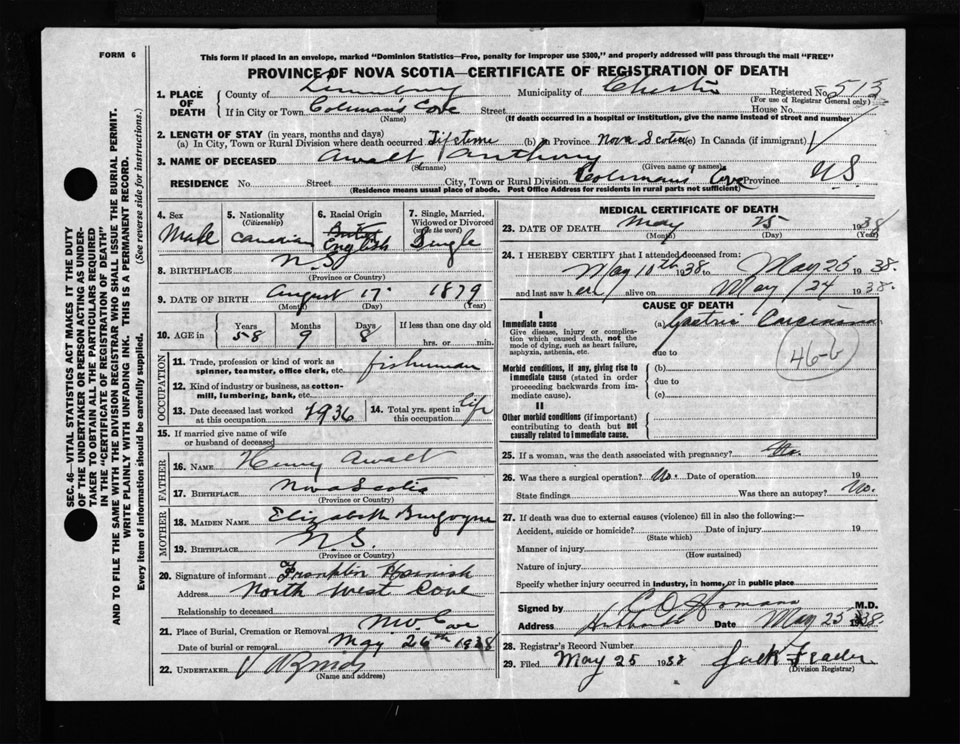 FORM 6
This form if placed in an envelope, marked "Dominion Statistics—Free, penalty for improper use $300," and properly addressed will pass through the mail "FREE"
PROVINCE OF NOVA SCOTIA—CERTIFICATE OF REGISTRATION OF DEATH
1. PLACE OF DEATH County of Lunenburg Municipality of Chester Registered No. 513
(For use of Registrar General only)
If in City or Town Coleman's Cove Street House No.
(Name) (If death occurred in a hospital or institution, give the name instead of street and number)
2. LENGTH OF STAY (in years, months and days)
(a) In City, Town or Rural Division where death occurred Lifetime (b) In Province Nova Scotia (c) In Canada (if immigrant)
3. NAME OF DECEASED Awalt, Anthony
(Surname) (Given name or names)
RESIDENCE No. Street City, Town or Rural Division Colemans Cove Province N.S.
(Residence means usual place of abode. Post Office Address for residents in rural parts not sufficient)
SEC. 46—VITAL STATISTICS ACT MAKES IT THE DUTY
OF THE UNDERTAKER OR PERSON ACTING AS UNDER-
TAKER TO OBTAIN ALL THE PARTICULARS REQUIRED
IN THE "CERTIFICATE OF REGISTRATION OF DEATH"
AND TO FILE THE SAME WITH THE DIVISION REGISTRAR WHO SHALL ISSUE THE BURIAL PERMIT.
WRITE PLAINLY WITH UNFADING INK. THIS IS A PERMANENT RECORD.
Every item of information should be carefully supplied. (See reverse side for instructions.)
4. Sex 5. Nationality (Citizenship) 6. Racial Origin 7. Single, Married, Widowed or Divorced (write the word)
Male Canadian English Single
8. BIRTHPLACE N.S.
(Province or Country)
9. DATE OF BIRTH August 17 1879
(Month) (Day) (Year)
10. AGE in Years Months Days If less than one day old
58 9 8 hrs. or min.
OCCUPATION
11. Trade, profession or kind of work as spinner, teamster, office clerk, etc. fisherman
12. Kind of industry or business, as cotton-mill, lumbering, bank, etc.
13. Date deceased last worked at this occupation 1936 14. Total yrs. spent in this occupation life
15. If married give name of wife or husband of deceased
FATHER
16. NAME Henry Awalt
17. BIRTHPLACE Nova Scotia
(Province or Country)
MOTHER
18. MAIDEN NAME Elizabeth Burgoyne
19. BIRTHPLACE N.S.
(Province or Country)
20. Signature of informant Franklin Harnish
Address North West Cove
Relationship to deceased
21. Place of Burial, Cremation or Removal N.W. Cove
Date of burial or removal May 26th 1938
22. UNDERTAKER
(Name and address)
MEDICAL CERTIFICATE OF DEATH
23. DATE OF DEATH May 25 1938
(Month) (Day) (Year)
24. I HEREBY CERTIFY that I attended deceased from:
May 10th 1938 to May 25 1938.
and last saw h alive on May 24 1938.
CAUSE OF DEATH
I
Immediate cause (a) Gastric Carcinoma
Give disease, injury, or complication which caused death, not the mode of dying, such as heart failure, asphyxia, asthenia, etc.
due to
46-b
Morbid conditions, if any, giving rise to immediate cause (stated in order proceeding backwards from immediate cause).
(b)
due to
(c)
II
Other morbid conditions (if important) contributing to death but not causally related to immediate cause.
25. If a woman, was the death associated with pregnancy?
26. Was there a surgical operation? No. Date of operation 19
State findings Was there an autopsy? No.
27. If death was due to external causes (violence) fill in also the following:—
Accident, suicide or homicide? Date of injury 19
(State which)
Manner of injury
(How sustained)
Nature of injury
Specify whether injury occurred in industry, in home, or in public place
Signed by M.D.
Address Date May 25 1938.
28. Registrar's Record Number
29. Filed May 25 1938 Jack
(Division Registrar)